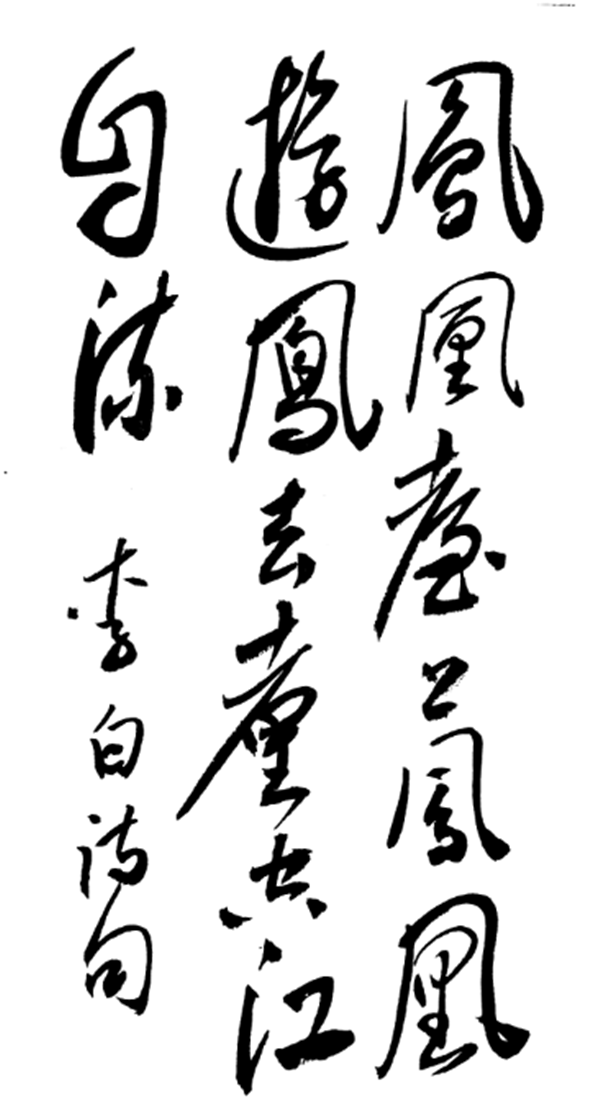 鳳凰臺上鳳凰
遊鳳去臺空江
自流
李白詩句